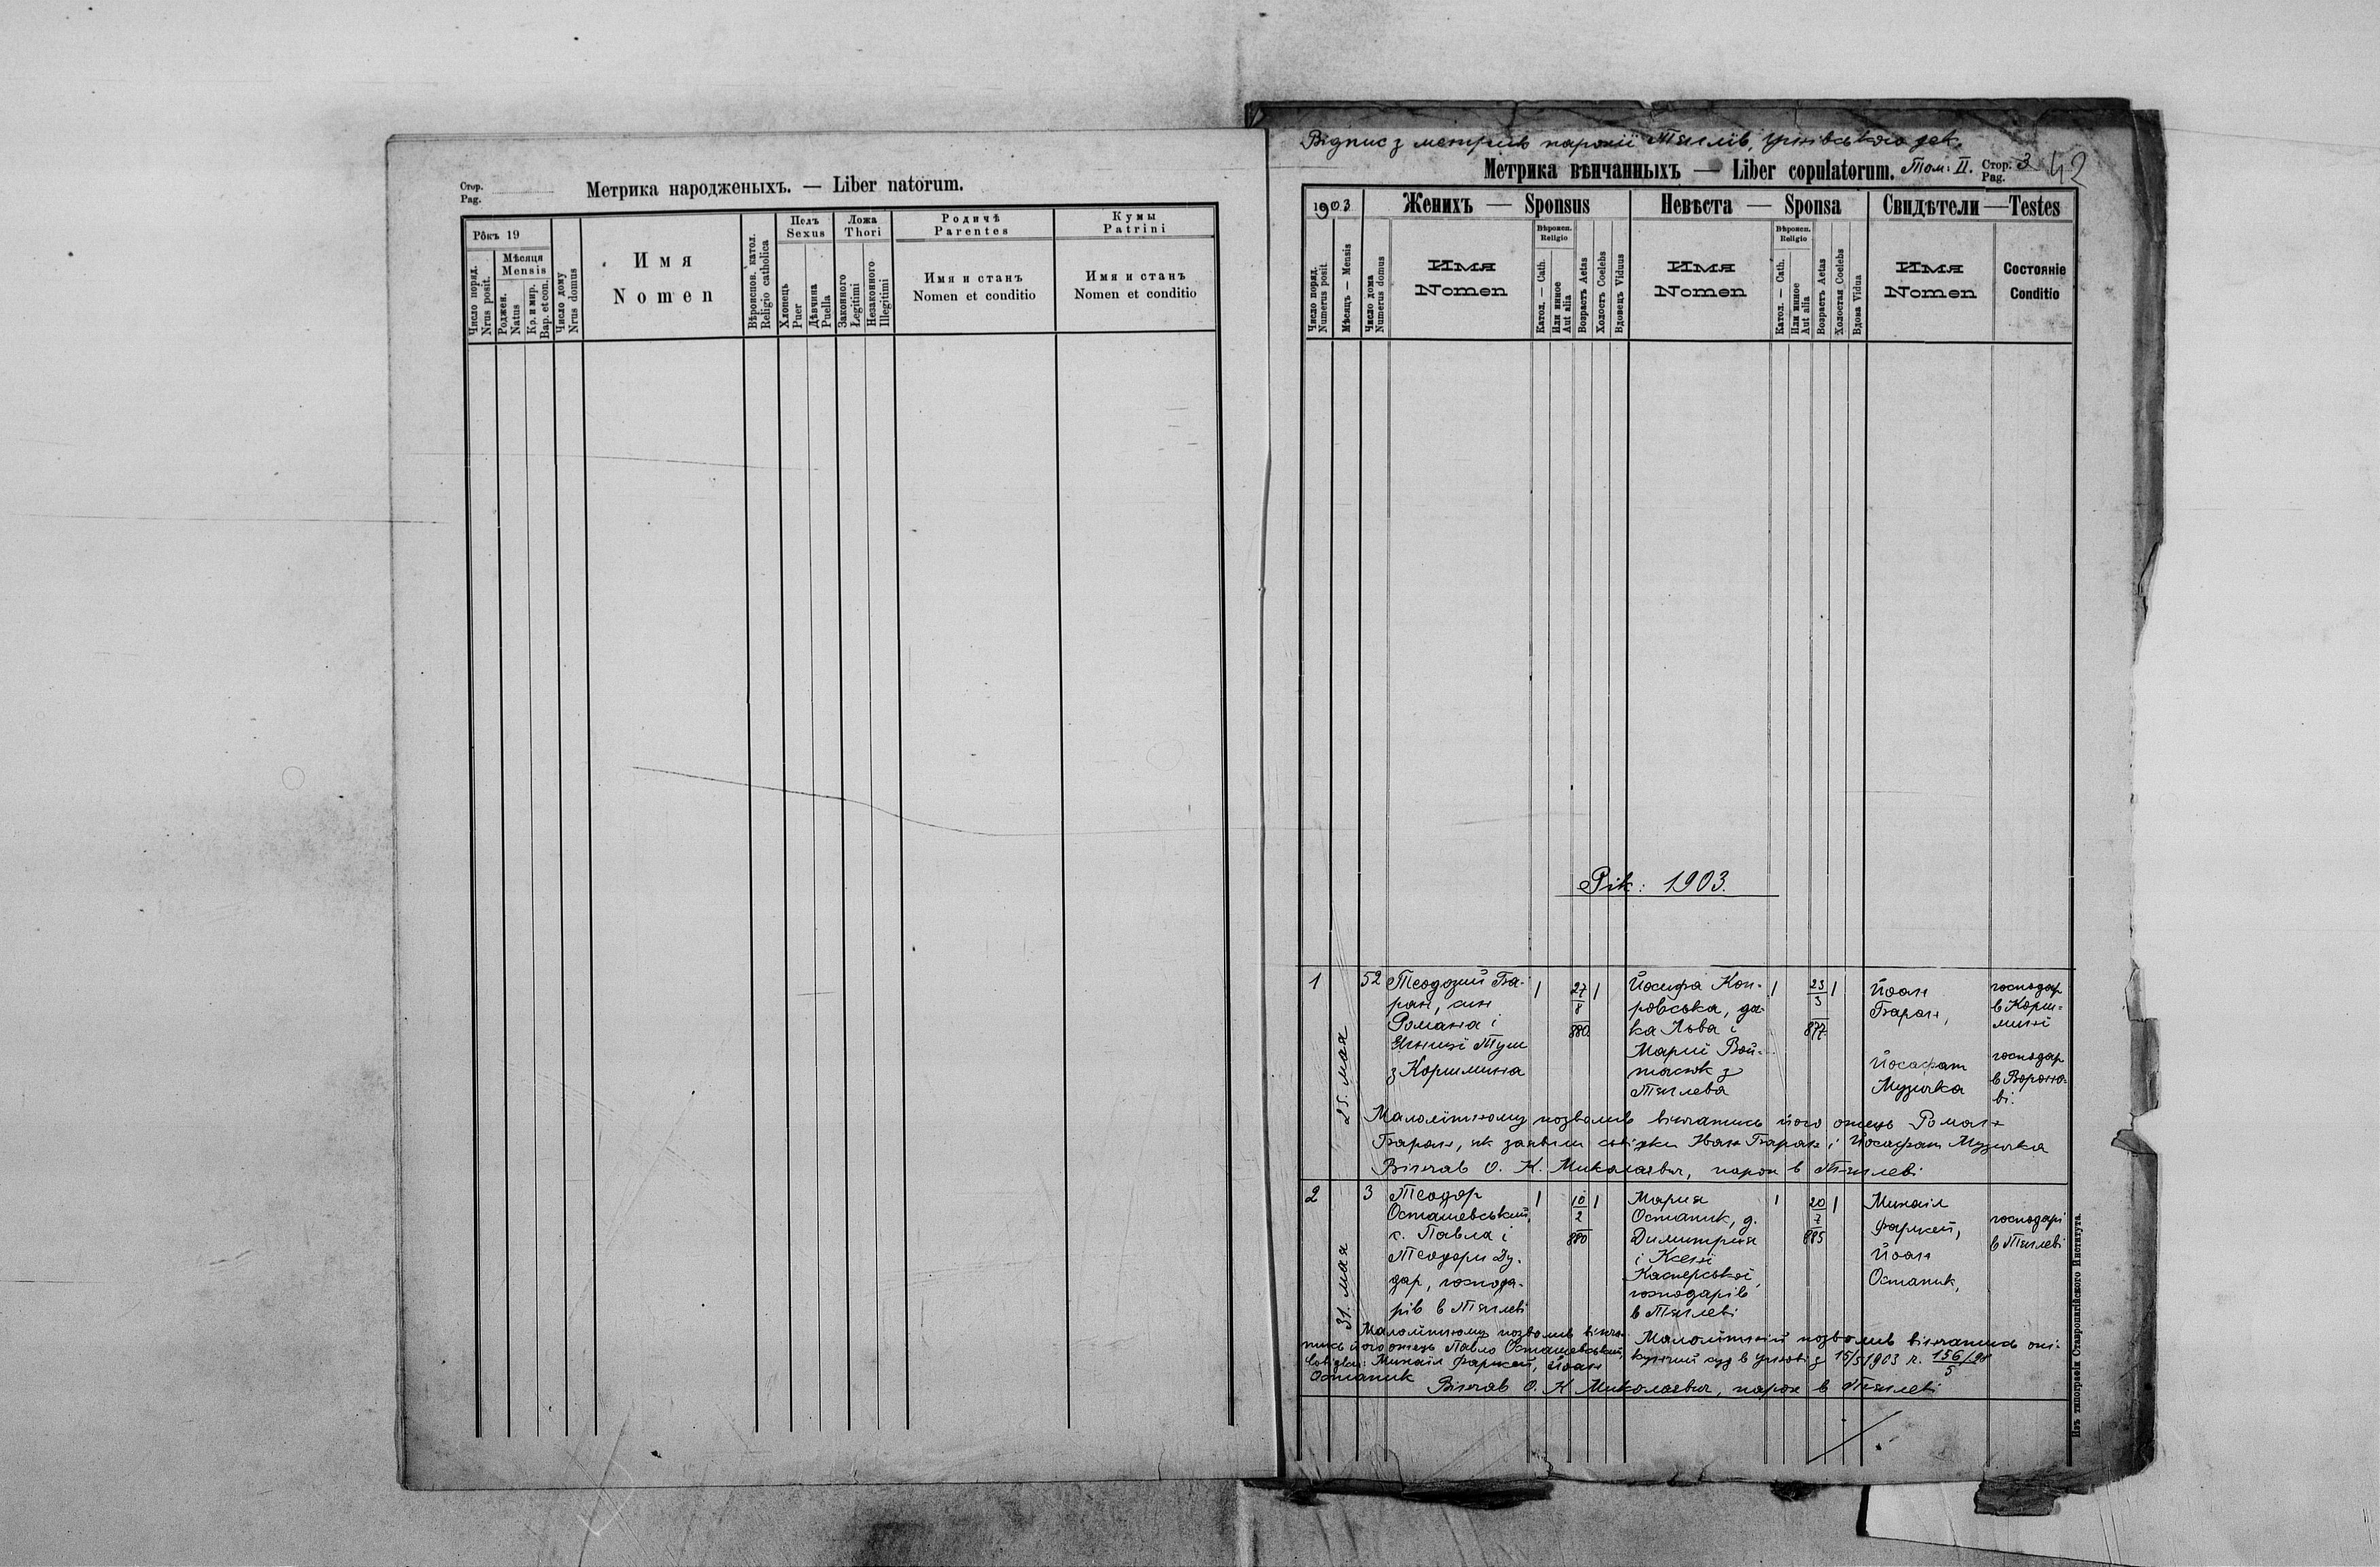 Стор.
Pag.
Метрика народженыхъ. — Liber natorum.
Рôкъ 19
Число поряд.
Nrus posit.
Мѣсяця
Mensis
Роджен.
Natus
Кр. и мир.
Bap. et con.
Число дому
Nrus domus
Имя
Nomen
Вѣроисповѣд. катол.
Religio catholica
Полъ
Sexus
Хлопець
Puer
Дѣвчина
Puella
Ложа
Thori
Законного
Legitimi
Незаконного
Illegitimi
Родичѣ
Parentes
Имя и станъ
Nomen et conditio
Кумы
Patrini
Имя и станъ
Nomen et conditio
Відпис з метрик парохії Тяглів, Угнівського дек.
Метрика вѣнчанныхъ — Liber copulatorum. Том: II. Стор. 3
Pag.
42
1903
Женихъ — Sponsus
Невѣста — Sponsa
Свидѣтели — Testes
Число поряд.
Numerus posit.
Мѣсяць — Mensis
Число дома
Numerus domus
Имя
Nomen
Вѣроисп.
Religio
Катол. — Cath.
Или иное
Aut alia
Возрастъ Aetas
Холостъ Coelebs
Вдовецъ Viduus
Имя
Nomen
Вѣроисп.
Religio
Катол. — Cath.
Или иное
Aut alia
Возрастъ Aetas
Холостая Coelebs
Вдова Vidua
Имя
Nomen
Состояніе
Conditio
Рік: 1903.
1
25. мая
52
Теодозий Ба-
ран, син
Романа і
Ягнисі Туш
з Коршмина
1
27
8
880.
1
Йосифа Коп-
ровська, до-
ка Льва і
Марії Вой-
тасюк з
Тяглева
1
23
3
877.
1
Йоан
Баран,
господар
в Корш-
мині
Йосафат
Музичка
господар
в Вороно-
ві.
Малолітному позволив вінчатись його отець Роман
Баран, як заявили свідки Іван Баран і Йосафат Музичка
Вінчав О. К. Миколаєвич, парох в Тяглеві
2
31. мая
3
Теодор
Осташевський,
с. Павла і
Теодори Ду-
дар, господа-
рів в Тяглеві
1
10
2
880
1
Мария
Остапик, д.
Димитрия
і Ксені
Касперської,
господарів
в Тяглеві
1
20
7
885
1
Михаіл
Фаркей,
Йоан
Остапик,
господарі
в Тяглеві
Малолітному позволив вінча-
тись його отець Павло Осташевський,
Свідки: Михаіл Фаркей, Йоан
Остапик
Малолітній позволив вінчатись опі-
кунчий суд в Угнові з 15/5 1903 ч. 156/91
5
Вінчав О. К. Миколаєвич, парох в Тяглеві
Изъ типографіи Ставропигійского Института.